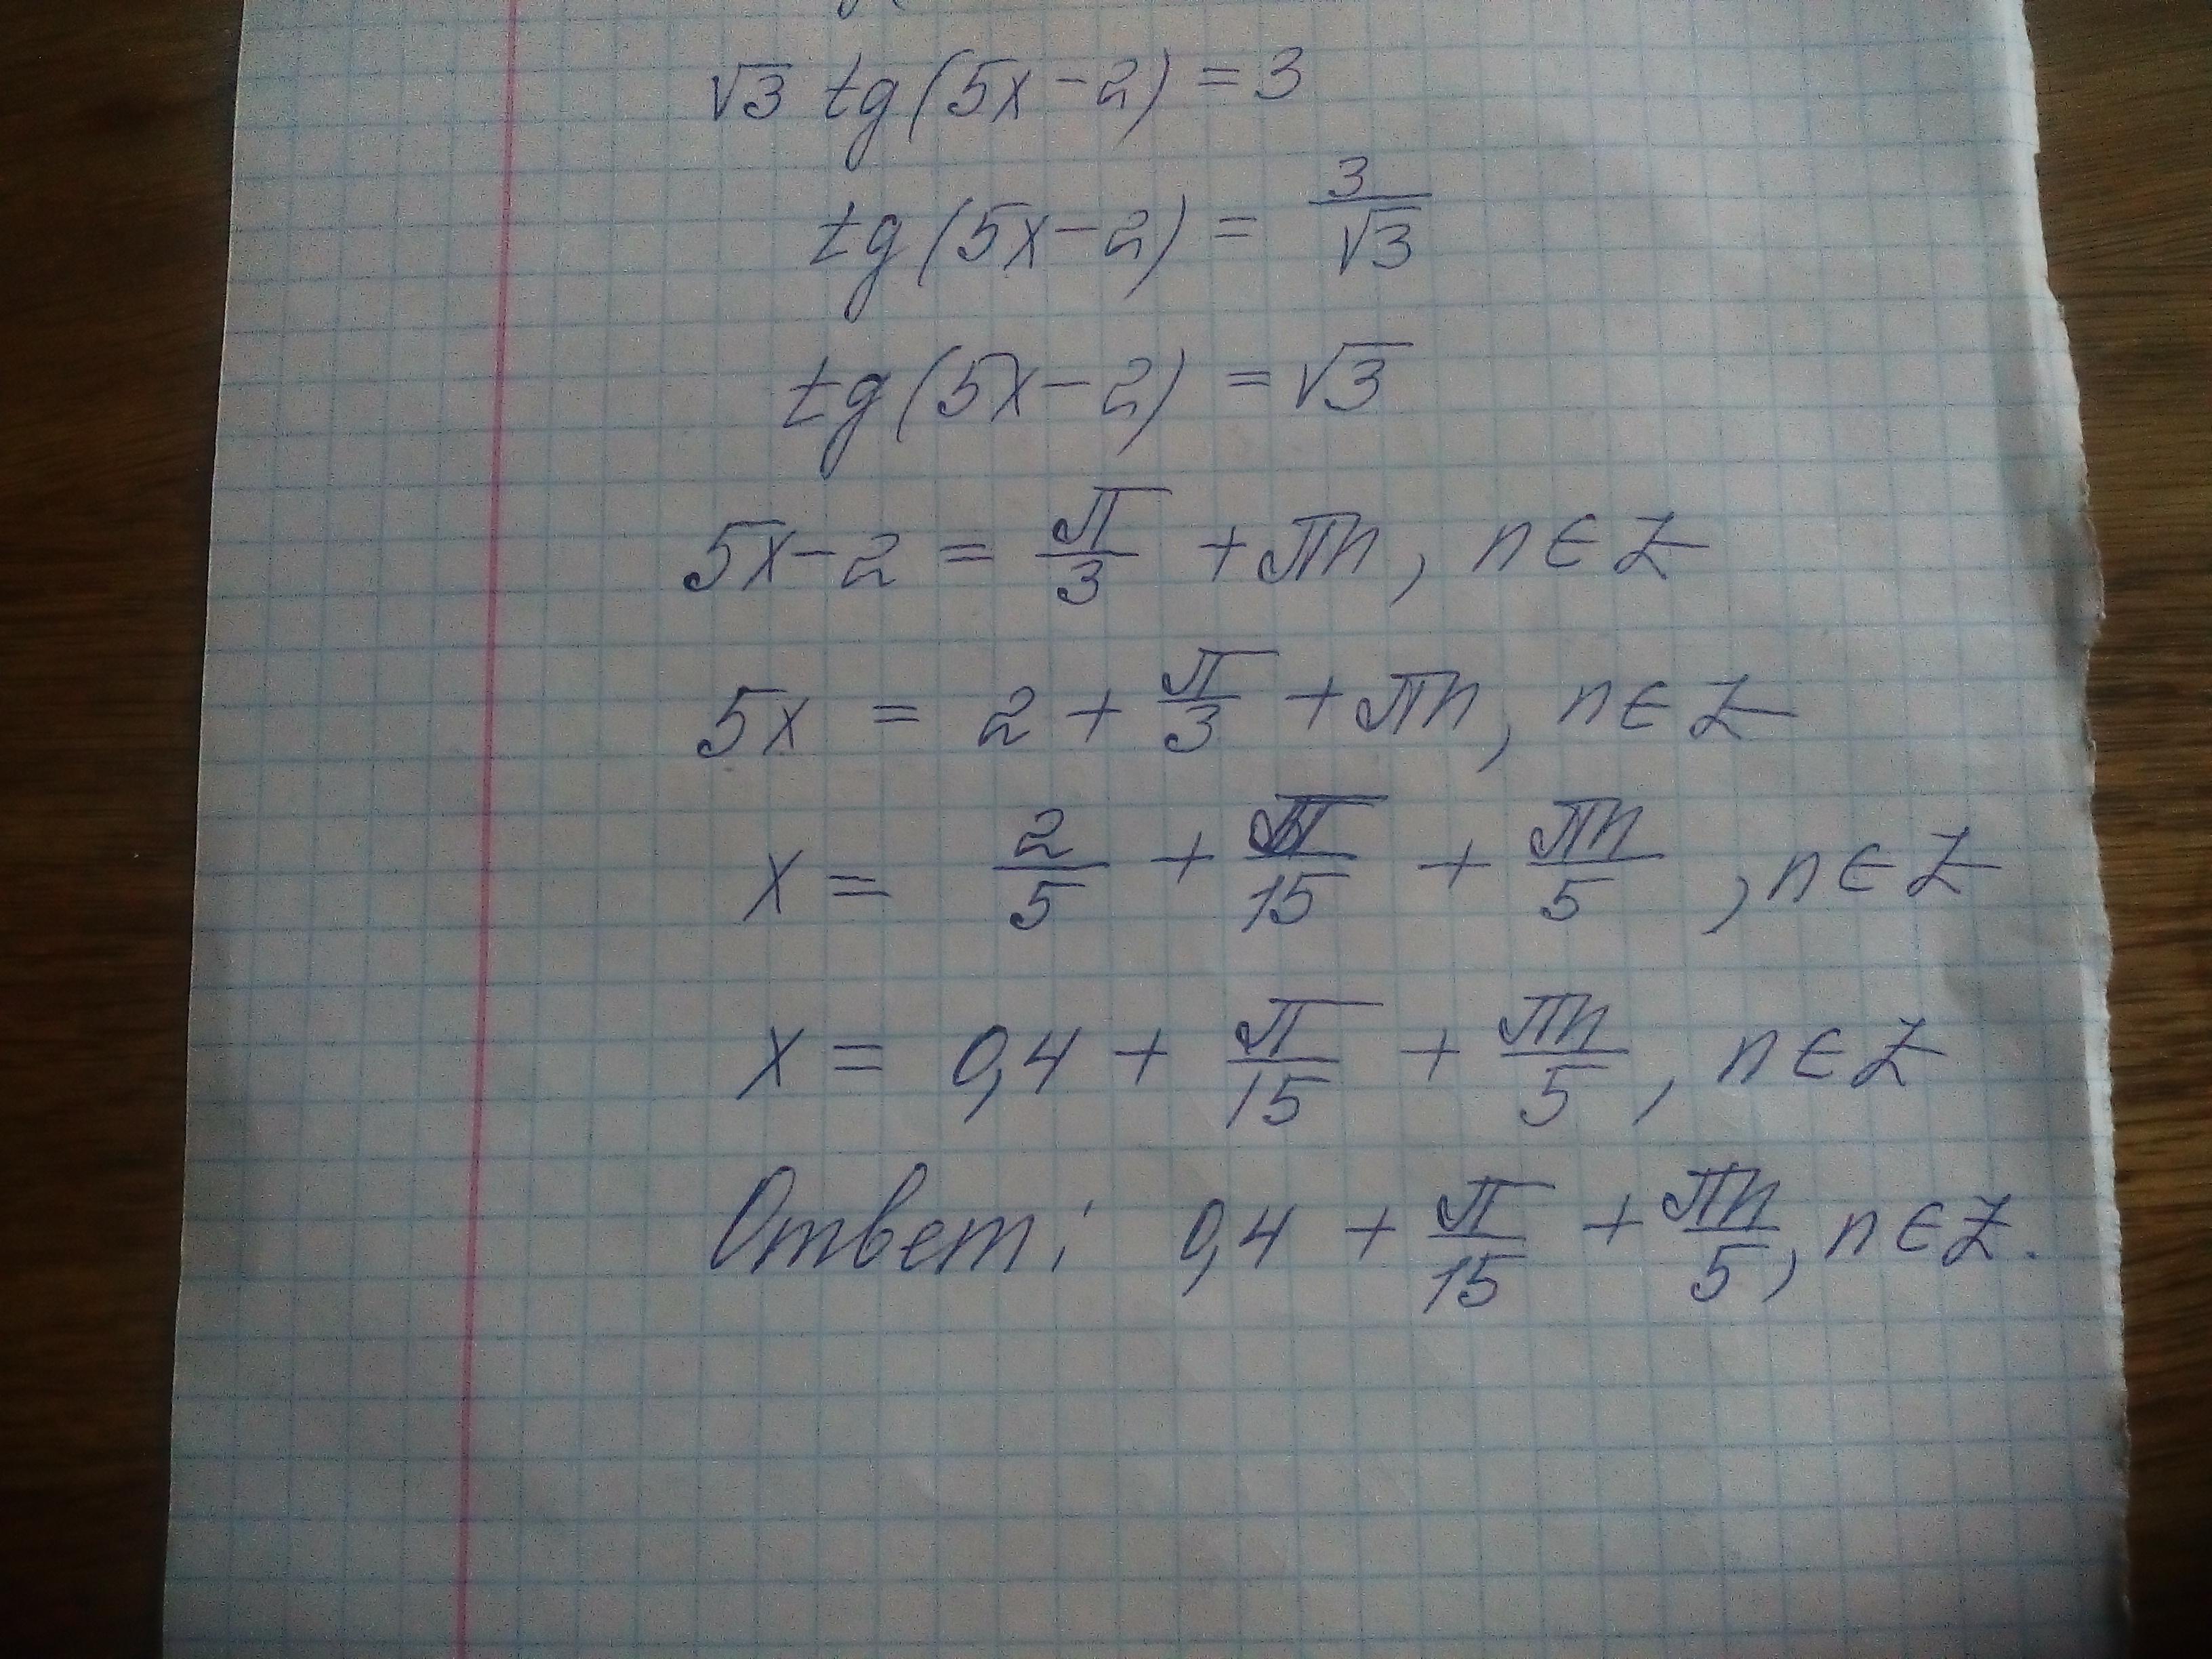 √3 tg(5x-2) = 3
tg(5x-2) = 3/√3
tg(5x-2) = √3
5x-2 = π/3 + πn, n∈Z
5x = 2 + π/3 + πn, n∈Z
x = 2/5 + π/15 + πn/5, n∈Z
x = 0,4 + π/15 + πn/5, n∈Z
Ответ: 0,4 + π/15 + πn/5, n∈Z.